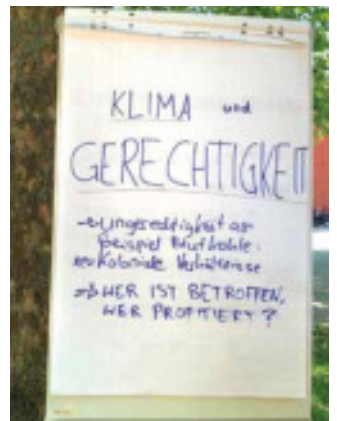 KLIMA und
GERECHTIGKEIT
→ Ungerechtigkeit am
Beispiel Blutkohle:
neokoloniale Verhältnisse
→ WER IST BETROFFEN,
WER PROFITIERT?